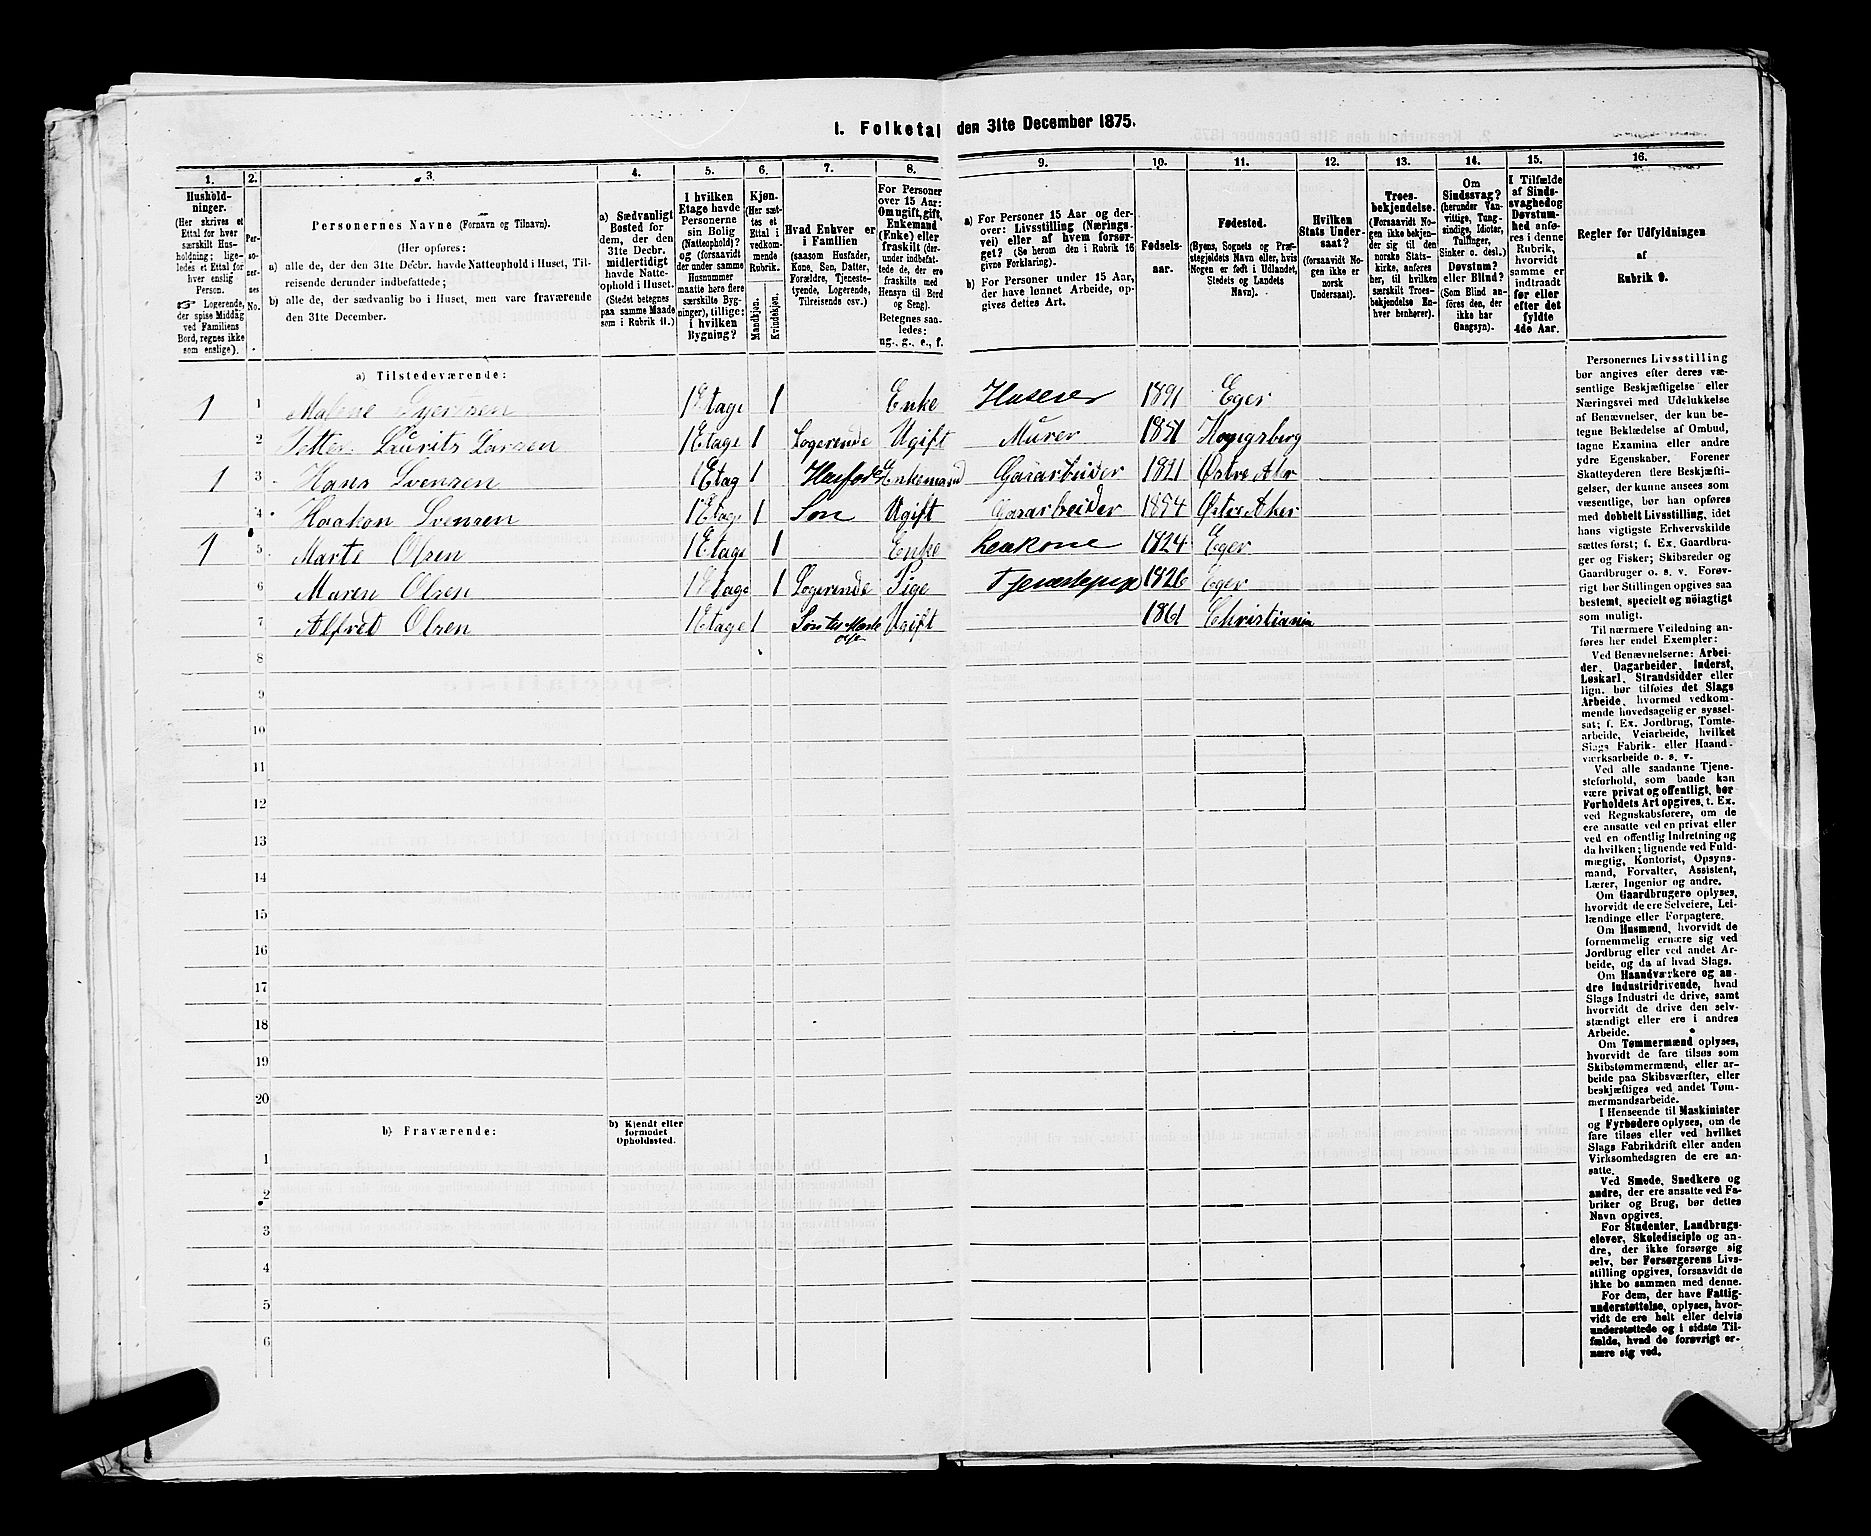 1. Folketal den 31te December 1875.
1. 2. 3. 4. 5. 6. 7. 8. 9. 10. 11. 12. 13. 14. 15. 16.
Hushold-
ninger.
(Her skrives et
Ettal for hver
særskilt Hus-
holdning; lige-
ledes et Ettal for
hver enslig
Person.
☞ Logerende,
der spise Middag
ved Familiens
Bord, regnes ikke
som enslige).
Per-
so-
ner-
nes
No.
Personernes Navne (Fornavn og Tilnavn).
(Her opføres:
a) alle de, der den 31te Decbr. havde Natteophold i Huset, Til-
reisende derunder indbefattede;
b) alle de, der sædvanlig bo i Huset, men vare fraværende
den 31te December.
a) Sædvanligt
Bosted for
dem, der den
31te Decbr.
midlertidigt
havde Natte-
ophold i Huset.
(Stedet betegnes
paa samme Maade
som i Rubrik 11.)
I hvilken
Etage havde
Personerne
sin Bolig
(Natteophold)?
og (forsaavidt
der under samme
Husnummer
maatte høre flere
særskilte Byg-
ninger), tillige:
i hvilken
Bygning?
Kjøn.
(Her sæt-
tes et
Ettal i
vedkom-
mende
Rubrik.
Mandkjøn.
Kvindekjøn.
Hvad Enhver er
i Familien
(saasom Husfader,
Kone, Søn, Datter,
Forældre, Tjeneste-
tyende, Logerende,
Tilreisende osv.)
For Personer
over 15 Aar:
Om ugift, gift,
Enkemand
(Enke) eller
fraskilt (der-
under indbefat-
tede de, der ere
fraskilte med
Hensyn til Bord
og Seng).
Betegnes saa-
ledes:
ug., g., e., f.
a) For Personer 15 Aar og der-
over: Livsstilling (Nærings-
vei) eller af hvem forsør-
get? (Se herom den i Rubrik 16
givne Forklaring).
b) For Personer under 15 Aar,
der have lønnet Arbeide, op-
gives dettes Art.
Fødsels-
aar.
Fødested.
(Byens, Sognets og Præ-
stegjeldets Navn eller, hvis
Nogen er født i Udlandet,
Stedets og Landets
Navn).
Hvilken
Stats Under-
saat?
(forsaavidt No-
gen ikke er
norsk
Undersaat).
Troes-
bekjendelse.
(Forsaavidt No-
gen ikke bekjen-
der sig til den
norske Stats-
kirke, anføres
her, til hvilken
særskilt Troes-
bekjendelse En-
hver benhører).
Om
Sindssvag?
(herunder Van-
vittige, Tung-
sindige, Idioter,
Tullinger,
Sinker o. desl.)
Døvstum?
eller Blind?
(Som Blind an-
føres den, der
ikke har
Gangsyn).
I Tilfælde
af Sinds-
svaghed og
Døvstum-
hed anfø-
res i denne
Rubrik,
hvorvidt
samme er
indtraadt
før eller
efter det
fyldte
4de Aar.
Regler for Udfyldningen
af
Rubrik 9.
a) Tilstedeværende:
1 1 Malene 1 Etage 1 Enke 1891 Eger
2 Laurits Larsen 1 Etage 1 Logerende Ugift Murer 1851 Kongsberg
1 3 Hans Svensen 1 Etag 1 Husfade Enkemand Gasarbeider 1821 Østre Aker
4 Haakon Svensen 1 Etage 1 Søn Ugift Gasarbeider 1854 Østre Aker
1 5 Marte Olsen 1 Etage 1 Enke 1824 Eger
6 Maren Olsen 1 Etage 1 Logerende Pige 1826 Eger
7 Alfred Olsen 1 Etage 1 Søn Marte Ugift 1861 Christiania
8
9
10
11
12
13
14
15
16
17
18
19
20
b) Fraværende:
b) Kjendt eller
formodet
Opholdssted.
1
2
3
4
5
6
Personernes Livsstilling
bør angives efter deres væ-
sentlige Beskjæftigelse eller
Næringsvei med Udelukkelse
af Benævnelser, der kun be-
tegne Beklædelse af Ombud,
tagne Examina eller andre
ydre Egenskaber. Forener
Skatteyderen flere Beskjæfti-
gelser, der kunne ansees som
væsentlige, bør han opføres
med dobbelt Livsstilling, idet
hans vigtigste Erhvervskilde
sættes først; f. Ex. Gaardbru-
ger og Fisker; Skibsreder og
Gaardbruger o. s. v. Forøv-
rigt bør Stillingen opgives saa
bestemt, specielt og nøiagtigt
som muligt.
Til nærmere Veiledning an-
føres her endel Exempler:
Ved Benævnelserne: Arbei-
der, Dagarbeider, Inderst,
Løskarl, Strandsidder eller
lign. bør tilføies det Slags
Arbeide, hvormed vedkom-
mende hovedsagelig er syssel-
sat; f. Ex. Jordbrug, Tomte-
arbeide, Veiarbeide, hvilket
Slags Fabrik- eller Haand-
værksarbeide o. s. v.
Ved alle saadanne Tjene-
steforhold, som baade kan
være privat og offentligt, bør
Forholdets Art opgives, t. Ex.
ved Regnskabsførere, om de
ere ansatte ved en privat eller
ved en offentlig Indretning og
da hvilken; lignende ved Fuld-
mægtig, Kontorist, Opsyns-
mand, Forvalter, Assistent,
Lærer, Ingeniør og andre.
Om Gaardbrugere oplyses,
hvorvidt de ere Selveiere, Lei-
lændinge eller Forpagtere.
Om Husmænd, hvorvidt de
fornemmelig ernære sig ved
Jordbrug eller ved andet Ar-
beide, og da af hvad Slags.
Om Haandværkere og an-
dre Industridrivende, hvad
Slags Industri de drive, samt
hvorvidt de drive den selv-
stændigt eller ere i andres
Arbeide.
Om Tømmermænd oplyses,
hvorvidt de fare tilsøs som
Skibstømmermænd, eller ar-
beide paa Skibsværfter, eller
beskjæftiges ved andet Tøm-
mermandsarbeide.
I Henseende til Maskinister
og Fyrbødere oplyses, om de
fare tilsøs eller ved hvilket
Slags Fabrikdrift eller anden
Virksomhedsgren de ere an-
satte.
Ved Smede, Snedkere og
andre, der ere ansatte ved Fa-
briker og Brug, bør dettes
Navn opgives.
For Studenter, Landbrugs-
elever, Skoledisciple og an-
dre, der ikke forsørge sig
selv, bør Forsørgerens Livs-
stilling opgives, forsaavidt de
ikke bo sammen med denne.
For dem, der have Fattig-
understøttelse, oplyses, hvor-
vidt de ere helt eller delvis
understøttede og i sidste Til-
fælde, hvad de forøvrigt er-
nære sig ved.